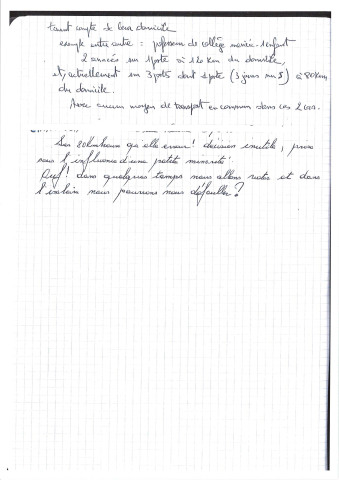 tenant compte de leur domicile
exemple entre autre : professeur de collège mariée 1 enfant
2 années sur 1 poste à 120 km du domicile,
et, actuellement sur 3 postes dont 1 poste (3 jours sur 5) à 80 km
du domicile.
Avec aucun moyen de transport en commun dans ces 2 cas.
Les 80km/heure qu'elle erreur ! décision inutile, prise
sous l'influence d'une petite minorité.
Ouf ! dans quelques temps nous allons voter et dans
l'isoloir nous pourrons nous défouler ?